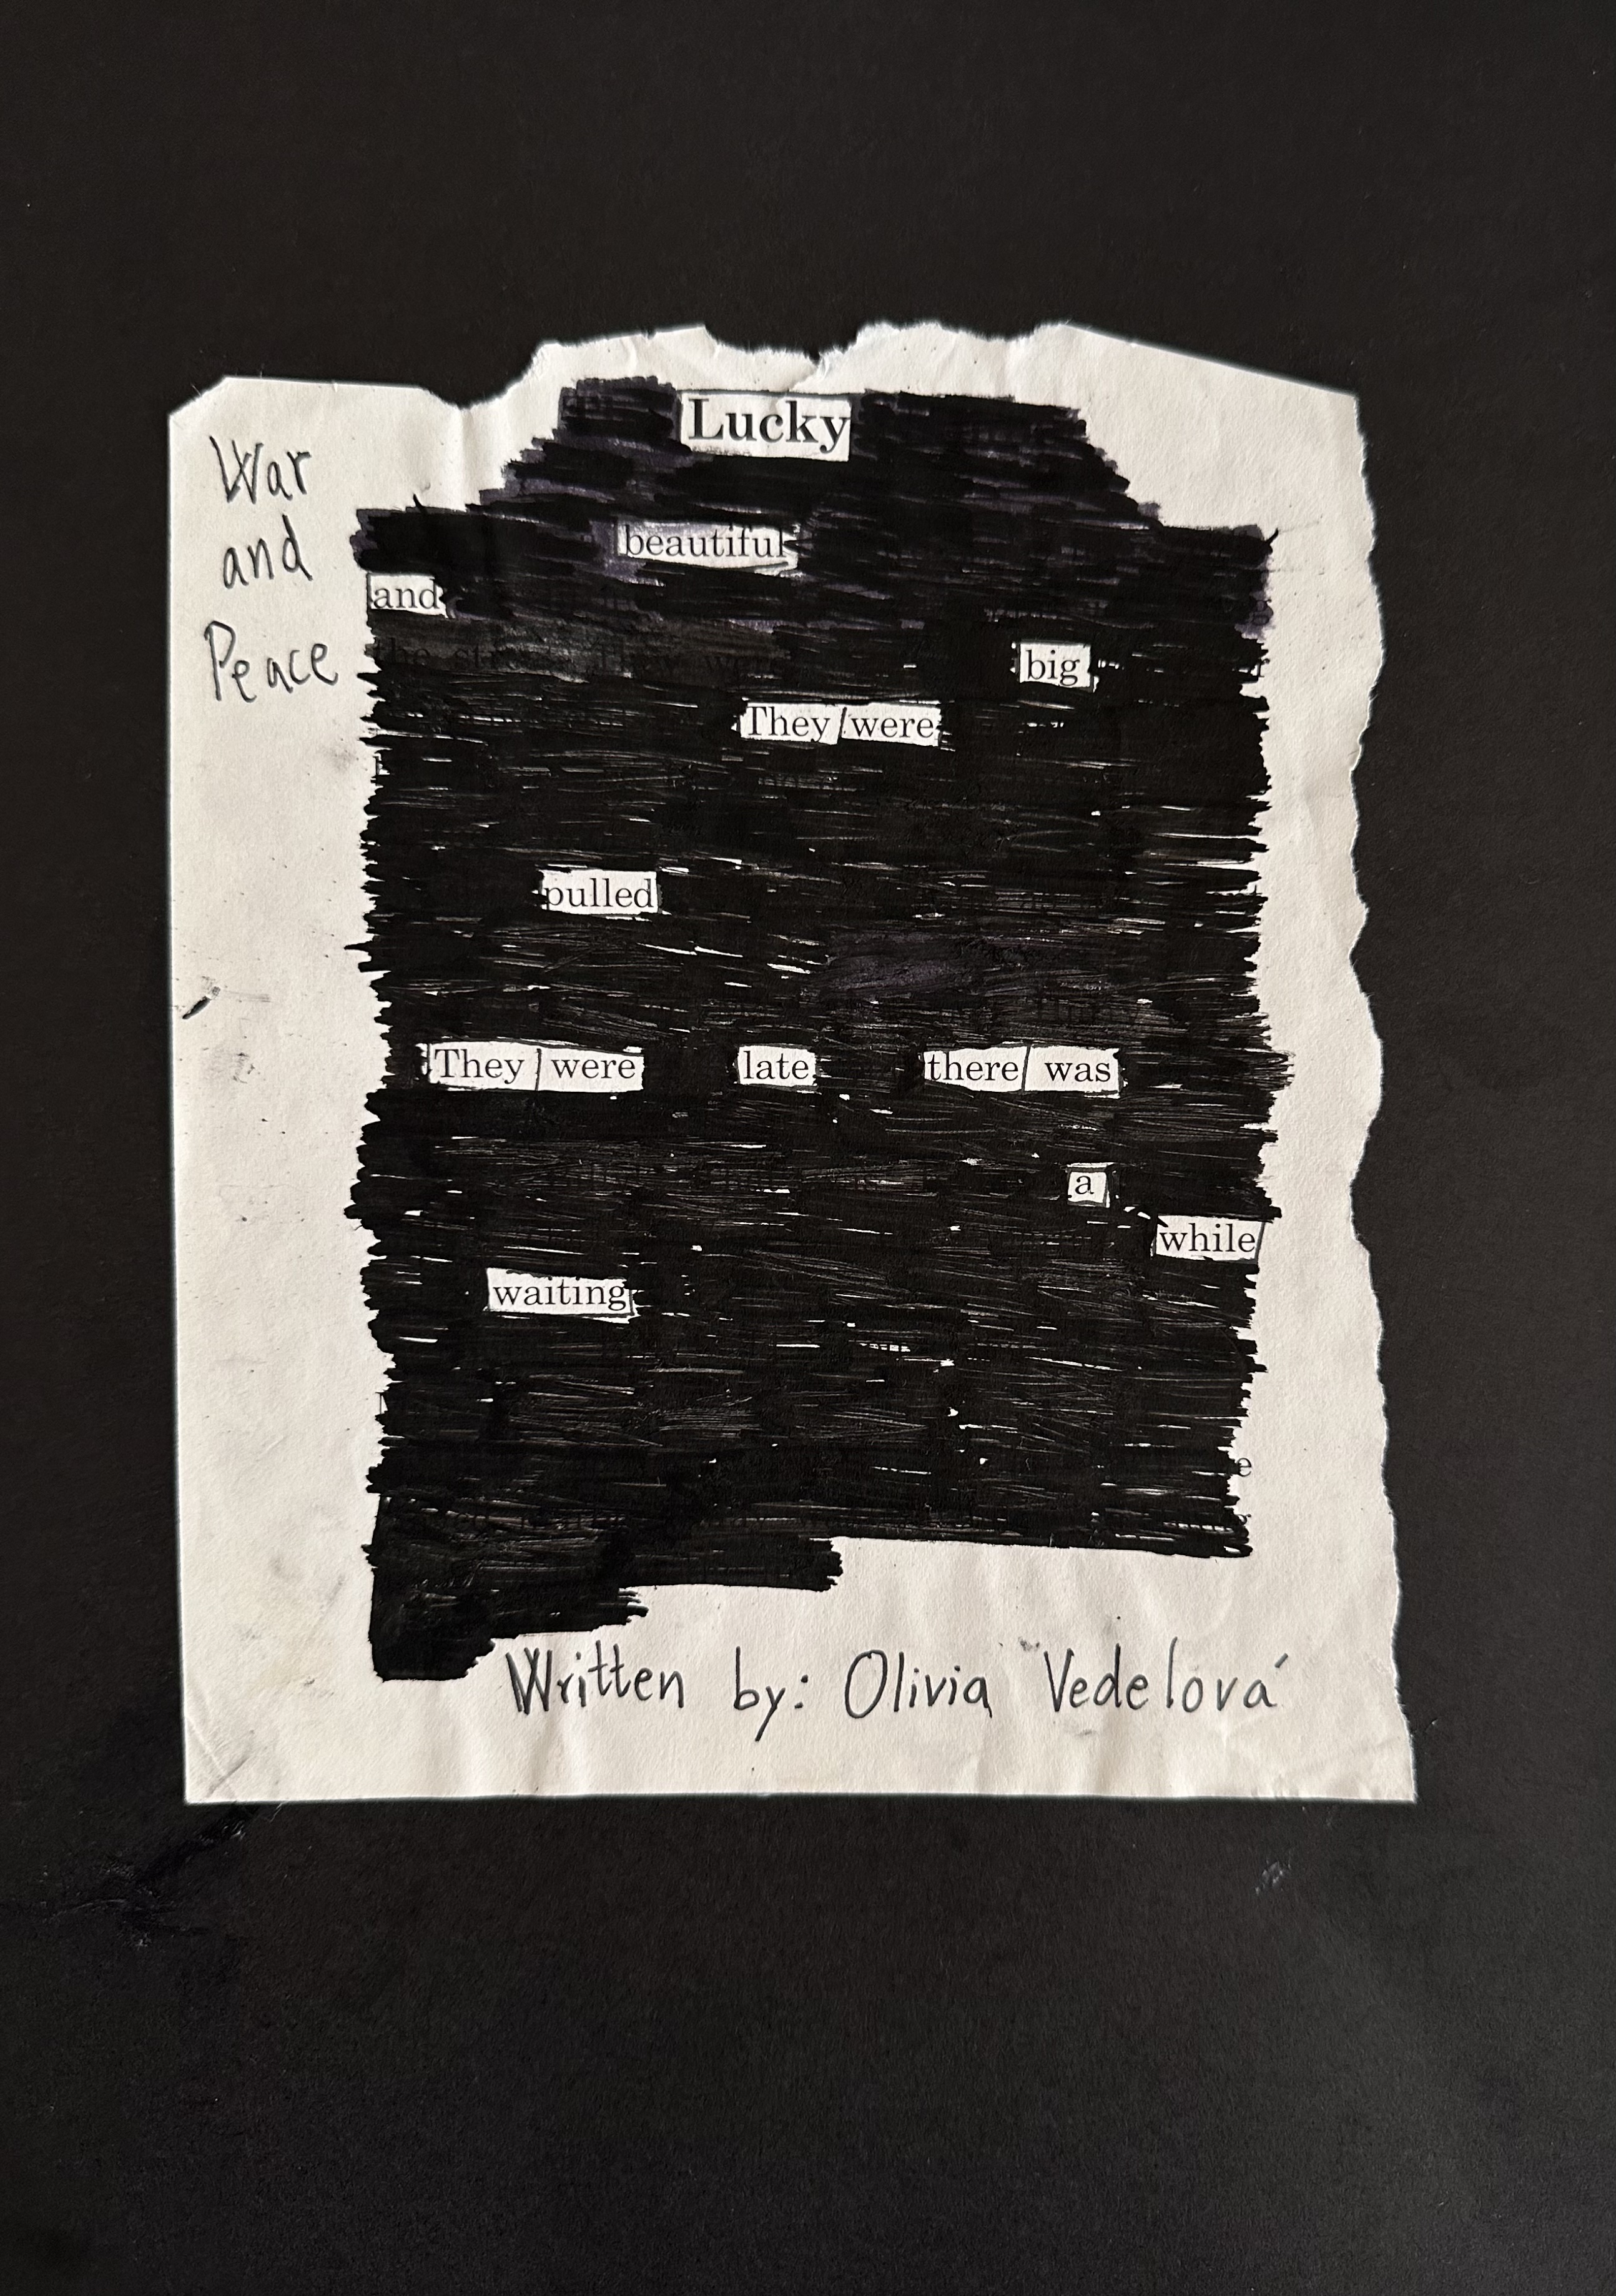 War
and
Peace
Lucky
beautiful
and
big
They were
pulled
They were late there was
a
while
waiting
Written by: Olivia Vedelová